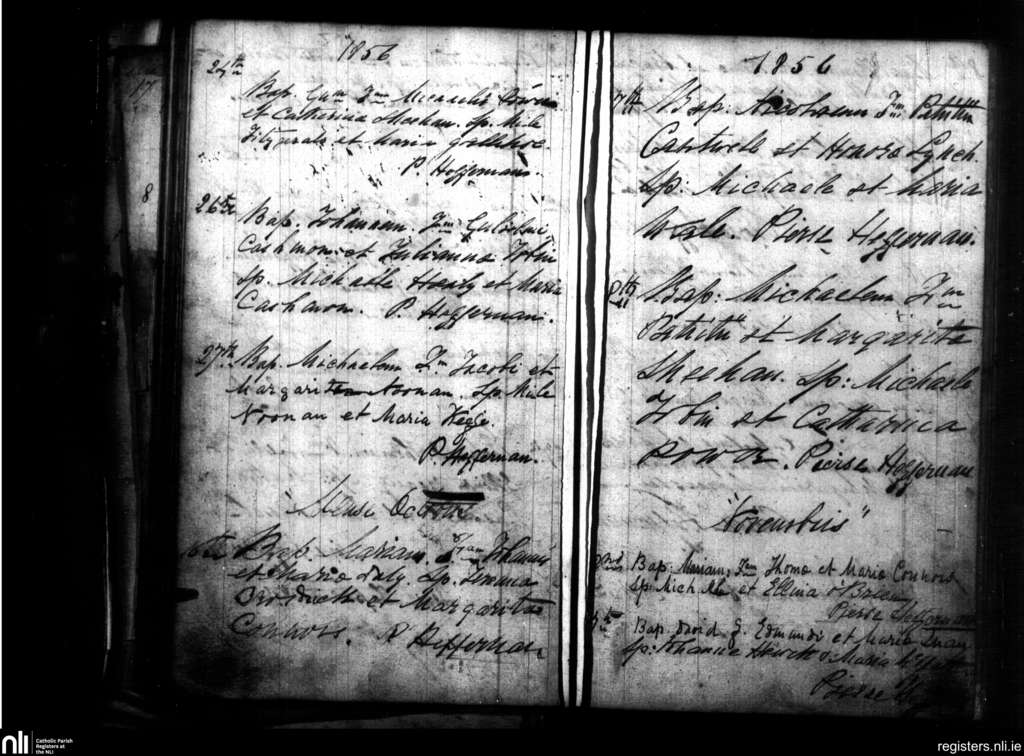 1856
24th
Bap. Gulm Fm Michaelis
et Catherina Meehan. Sp. Mile
Fitzgerald et Maria
P. Heffernan.
26th
Bap. Johannam. Fm Gulielmi
Cashmon et Julianna Tobin
Sp. Michaele Healy et Maria
Cashmon. P. Heffernan.
27th Bap. Michaelem Fm Jacobi et
Margarita Noonan. Sp. Mile
Noonan et Maria Kegle.
P. Heffernan.
Mense Octobris.
Bap. Mariam. Fam Johannis
et Maria Daly. Sp. Temina
et Margarita
Connors. P. Heffernan
17
8
1856
7th Bap: Abraham Fm Patritii
Cantwell et Honora Lynch.
Sp: Michaele et Maria
Wale. Pierse Heffernan.
Bap: Michaelem Fm
Patritii et Margarita
Sheehan. Sp: Michaele
Tobin et Catharina
Power. Pierse Heffernan
"Novembris"
3rd Bap: Mariam, Fam Thoma et Maria Connors
Sp: Michaele et Ellina O'Brien
Pierse Heffernan
Bap. David f. Edmundi et Maria
Sp: Johanne Hewitt & Maria
Pierse
nli Catholic Parish
Registers at
the NLI
registers.nli.ie